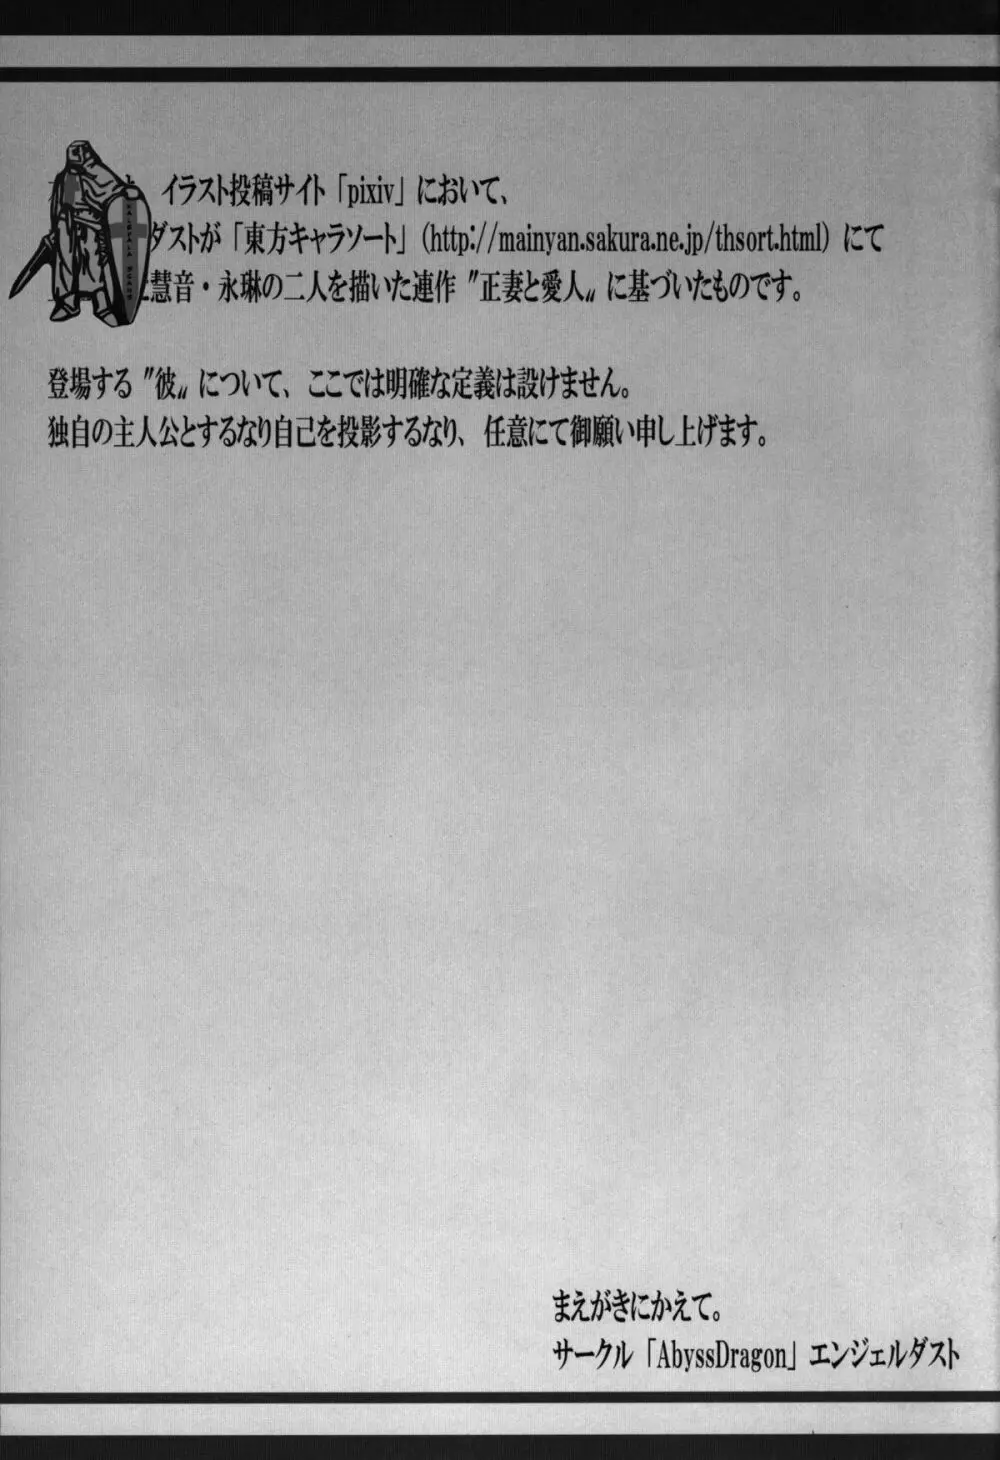 イラスト投稿サイト「pixiv」において、
ダストが「東方キャラソート」(http://mainyan.sakura.ne.jp/thsort.html) にて
慧音・永琳の二人を描いた連作〝正妻と愛人〟に基づいたものです。
登場する〝彼〟について、ここでは明確な定義は設けません。
独自の主人公とするなり自己を投影するなり、任意にて御願い申し上げます。
まえがきにかえて。
サークル「AbyssDragon」エンジェルダスト
KALEVALA SCANS